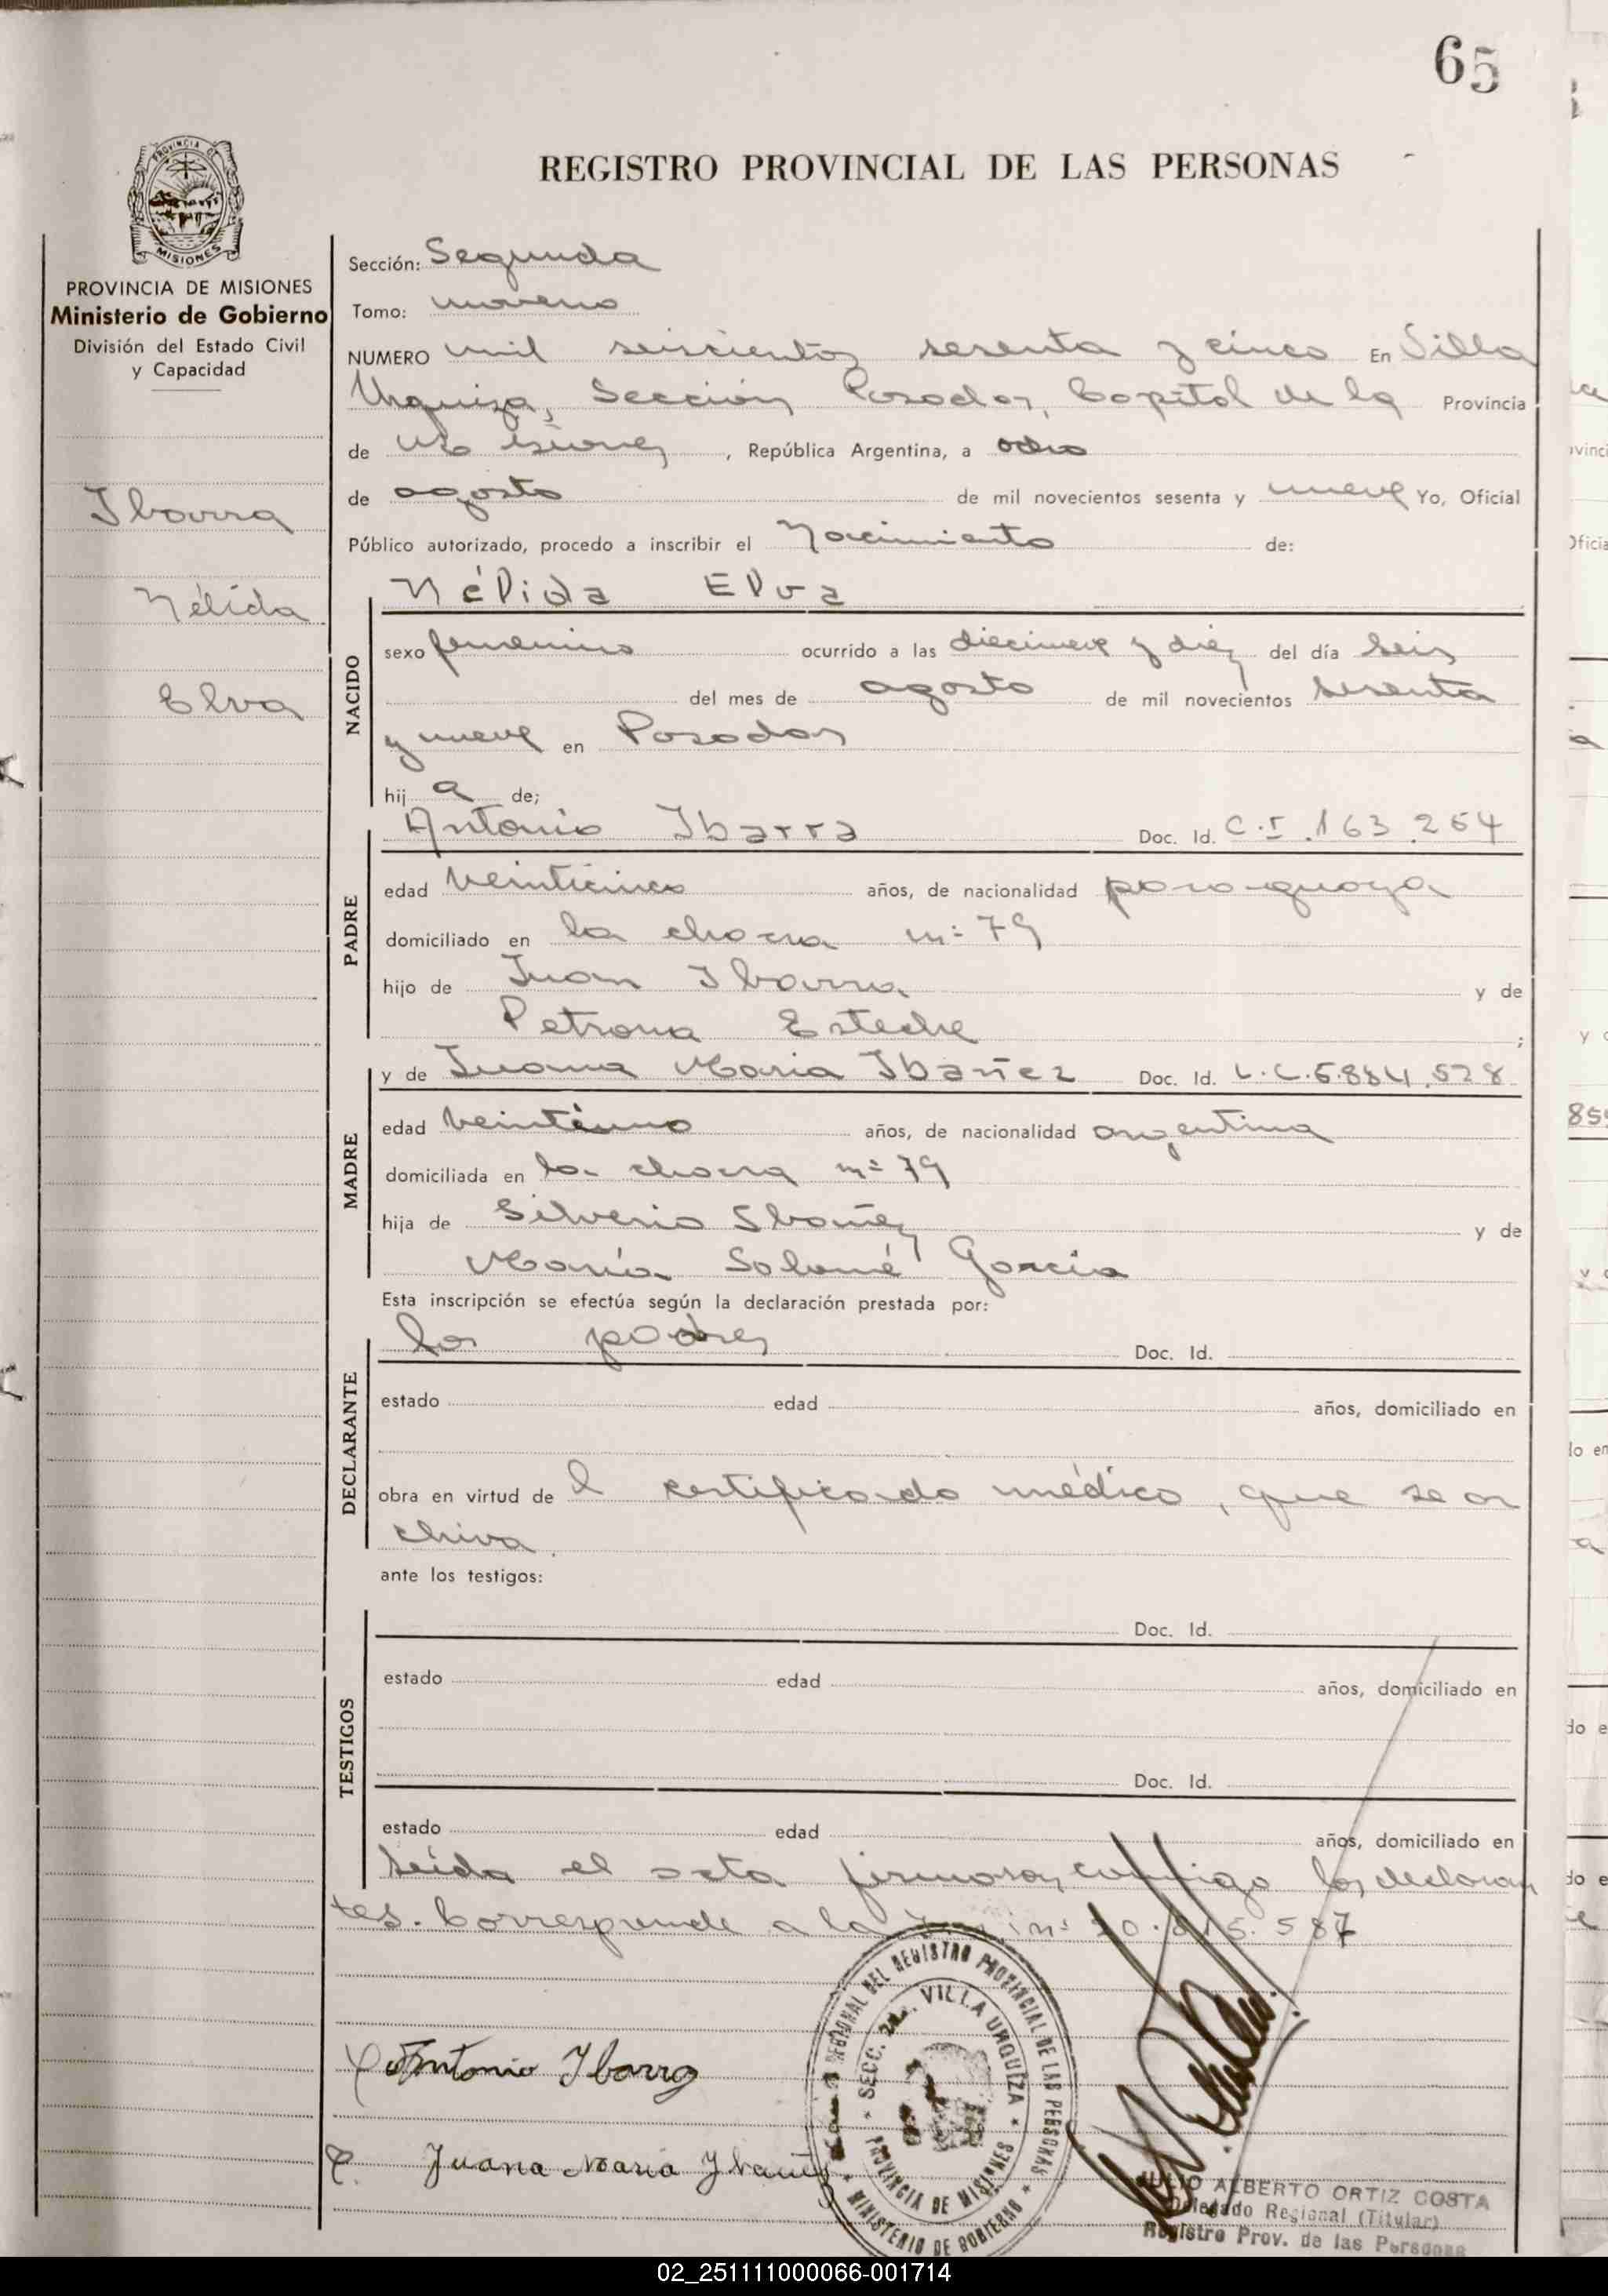 65
REGISTRO PROVINCIAL DE LAS PERSONAS
PROVINCIA DE
MISIONES
PROVINCIA DE MISIONES
Ministerio de Gobierno
División del Estado Civil
y Capacidad
Ibarra
Nélida
Elva
Sección: Segunda
Tomo: noveno
NUMERO mil seiscientos sesenta y cinco En Villa
Urquiza, Sección Posadas, Capital de la Provincia
de Misiones, República Argentina, a ocho
de agosto de mil novecientos sesenta y nueve Yo, Oficial
Público autorizado, procedo a inscribir el Nacimiento de:
Nélida Elva
NACIDO
sexo femenino ocurrido a las diecinueve y diez del día seis
del mes de agosto de mil novecientos sesenta
y nueve en Posadas
hij a de;
Antonio Ibarra Doc. Id. C.I. 163.264
PADRE
edad veinticinco años, de nacionalidad paraguaya
domiciliado en la chacra nº 79
hijo de Juan Ibarra y de
Petrona Esteche ;
y de Juana Maria Ibañez Doc. Id. L.C. 5.884.528
MADRE
edad veintiuno años, de nacionalidad argentina
domiciliada en la chacra nº 79
hija de Silverio Ibañez y de
María Salomé Garcia
Esta inscripción se efectúa según la declaración prestada por:
los padres Doc. Id.
DECLARANTE
estado edad años, domiciliado en
obra en virtud de l certificado médico, que se ar
chiva.
ante los testigos:
Doc. Id.
TESTIGOS
estado edad años, domiciliado en
Doc. Id.
estado edad años, domiciliado en
Leida el acta firman conmigo los declaran
tes. Corresponde a la nº 20.815.587
Antonio Ibarra
Juana Maria Ybañez
REGIONAL DEL REGISTRO PROVINCIAL DE LAS PERSONAS
SECC. 2a. VILLA URQUIZA
PROVINCIA DE MISIONES
MINISTERIO DE GOBIERNO
JULIO ALBERTO ORTIZ COSTA
Delegado Regional (Titular)
Registro Prov. de las Personas
02_251111000066-001714